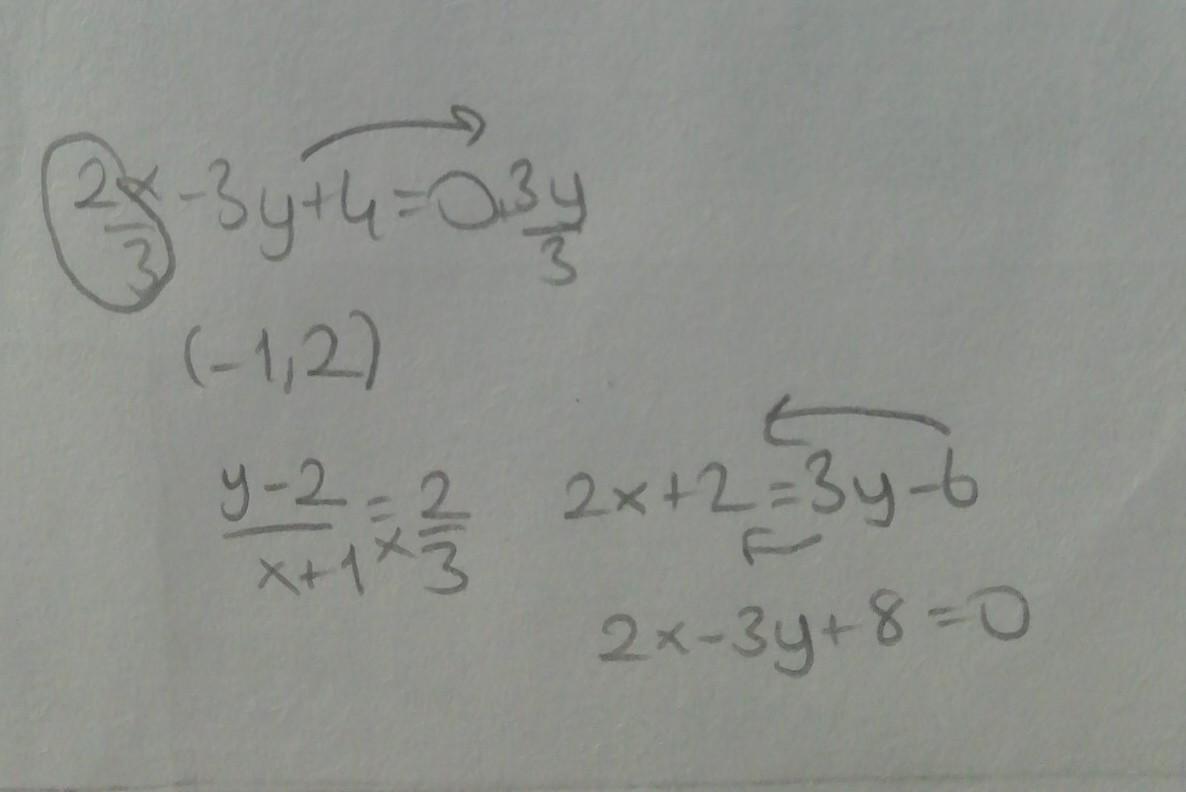 2x/3 -3y+4=0 3y/3
(-1,2)
y-2/x+1 = 2/3
2x+2=3y-6
2x-3y+8=0